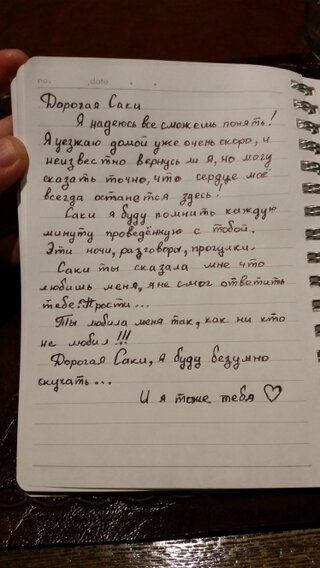 no. date . . .
Дорогая Саки
Я надеюсь все сможешь понять!
Я уезжаю домой уже очень скоро, и
неизвестно вернусь ли я, но могу
сказать точно, что сердце моё
всегда останется здесь!
Саки я буду помнить каждую
минуту проведённую с тобой.
Эти ночи, разговоры, прогулки.
Саки ты сказала мне что
любишь меня, я не смог ответить
тебе. Прости...
Ты любила меня так, как ни кто
не любил!!!
Дорогая Саки, я буду безумно
скучать...
И я тоже тебя ♡